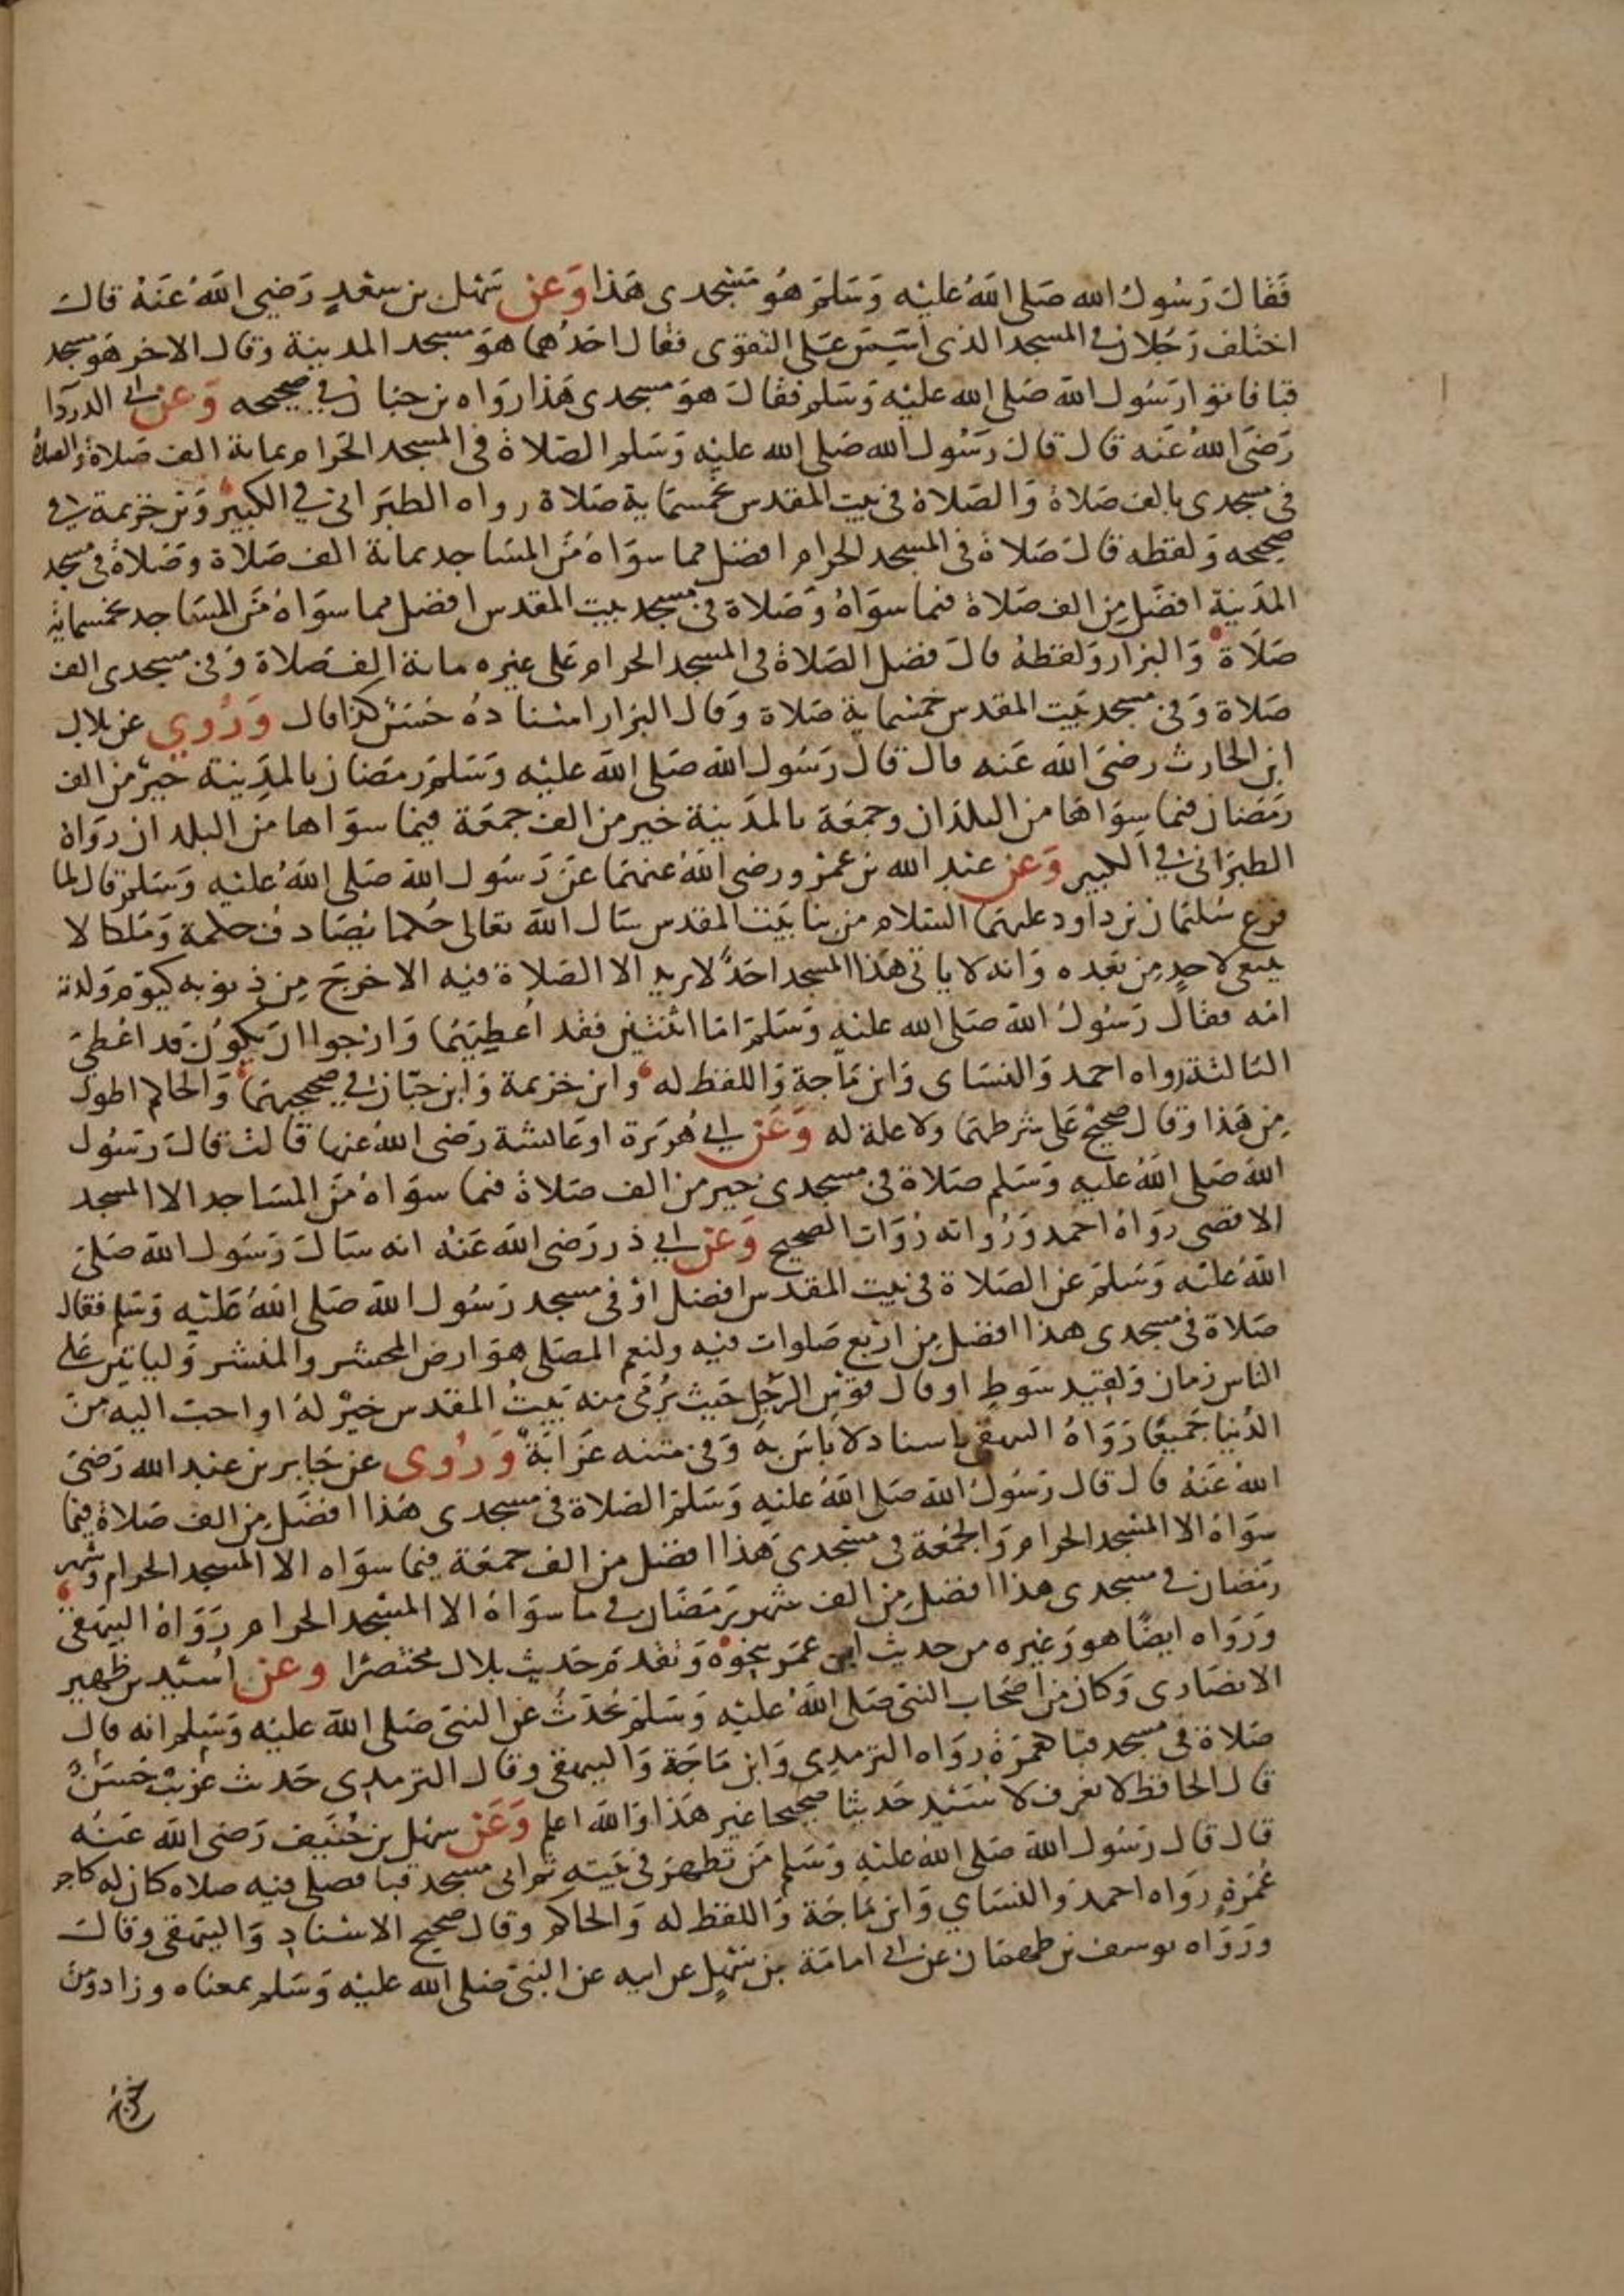 فَقَالَ رَسُولُ الله صَلى اللهُ عَليْه وَسَلمَ هُو مَسْجدى هَذا وَعَن سَهْل بن سعْدٍ رَضِي اللهُ عَنهُ قالَ
اختلف رَجُلان في المسجد الذى اسّسَ عَلى التقوى فقال احَدُهما هوَ مسجد المدينة وقال الاخر هو مسجد
قبا فاتوا رَسُول الله صَلى الله عليْه وَسَلم فقالَ هوَ مسجدى هَذا رَوَاه بن حبان في صحيحه وَعن ابي الدردا
رَضىَ اللهُ عَنه قال قالَ رَسُول الله صَلى الله عليْه وَسَلم الصَلاة فى المسجد الحَرام بماية الف صَلاة والصلاة
فى مسجدى بالف صَلاة وَالصَلاة فى بيت المقدس بخمسماية صَلاة رواه الطبَرانى في الكبير وَبن خزيمة في
صحيحه وَلفظه قالَ صَلاة فى المسجد الحرام افضل مما سوَاهُ مَن المسَاجد بماية الف صَلاة وَصَلاة فى مسجد
المدَينة افضَل مِن الف صَلاة فيما سوَاهُ وَصَلاة فى مسجد بيت المقدس افضل مما سوَاهُ مَن المسَاجد بخمسماية
صَلاة وَالبزار وَلفظهُ قالَ فضل الصَلاة فى المسجد الحرام عَلى غيره ماية الف صَلاة وَفى مسجدى الف
صَلاة وَفى مسجد بَيت المقدس خمسْماية صَلاة وَقال البزار اسْنادهُ حَسَنٌ كذا قال وَرُوي عن بلال
ابن الحارث رضىَ الله عَنه قال قالَ رَسُول الله صَلى الله عليْه وَسَلمَ رمضان بالمدَينة خيرٌ من الف
رمَضَان فيما سِوَاهَا من البلدَان وجمعَة بالمدَينة خير من الف جمعَة فيما سوَاها مِن البلدان روَاهُ
الطبرَانى في الكبير وَعن عبْد الله بن عَمْرو رضى اللهُ عنهمَا عَن رَسُول الله صَلى اللهُ عليْه وَسَلم قال لما
فرغ سُليْمان بن داود عليهمَا السَلام من بنا بَيْت المقدس سَال الله تعالى حُكما يُصَادف حكمه وَمُلكا لا
ينبغى لاحدٍ مِن بَعْده وَانه لا ياتى هَذا المسجد احَدٌ لا يريد الا الصَلاة فيه الا خرجَ مِن ذنوبه كيَوْم وَلدته
امّه فقال رَسُولُ الله صَلى الله عليْه وَسَلمَ امّا اثنتيْن فقد اُعْطِيَهُما وَارْجوا ان يَكونَ قد اعْطِىَ
الثالثة رواه احمد وَالنسَاى وَابن مَاجة وَاللفظ له وابن خزيمة وَابن حبَان في صحيحيهمَا وَالحاكم اطول
مِن هَذا وقال صحيْح عَلى شرطهمَا ولا علة له وَعَن ابي هُريَرة او عَائشة رَضى اللهُ عنها قالت قالَ رَسُول
الله صَلى اللهُ عَليه وَسَلم صَلاة فى مسجدى خير من الف صَلاة فيما سوَاهُ مَن المسَاجد الا المسجد
الاقصى روَاهُ احَمد وَرُواته رُوَات الصحيح وَعَن ابي ذر رَضى الله عَنهُ انه سَالَ رَسُول الله صَلى
اللهُ عليْه وَسَلمَ عن الصَلاة فى بيت المقدَس افضل اوْ فى مسجد رَسُول الله صَلى اللهُ عَليْه وَسَلم فقال
صَلاة فى مسجدى هذا افضل مِن ارْبع صَلوات فيه ولنعم المصَلى هوَ ارض المحشر والمنشر وَلياتيَن عَلى
الناس زمان وَلقيد سَوطٍ او قال قوْس الرَّجل حَيث يُرَى منه بَيْتُ المقدس خيْر لهُ او احبّ اليه مِنَ
الدُنيا جَميعًا رَوَاهُ البيهقى باسناد لا باسَ به وَفى متنه غَرَابَةٌ وَرُوى عن جَابر بن عبْد الله رَضىَ
اللهُ عَنهُ قال قال رَسُولُ الله صَلى اللهُ عليْه وَسَلم الصَلاة فى مسجدى هَذا افضَل من الف صَلاة فيمَا
سوَاهُ الا المسْجد الحرام وَالجمْعَة فى مسْجدى هَذا افضل من الف جمعَة فيما سوَاه الا المسجد الحرام وشهر
رَمضان فى مسجدى هذا افضل مِن الف شهر رَمَضَان فى ما سوَاهُ الا المسْجد الحرام رَوَاهُ البيهقى
وَرَوَاه ايضًا هو وَغيره من حديث ابن عمَر بنحْوه وَتقدمَ حَديث بلال مختصرًا وعن اُسَيْد بن ظُهير
الانصَارى وَكان مِن اصْحَاب النبىّ صَلى اللهُ عليْه وَسَلمَ يُحَدّثُ عَن النبىّ صَلى الله عليْه وَسَلم انه قال
صَلاة فى مسجد قبَا كعُمرَة روَاه الترمدى وَابن مَاجَة وَالبيهقى وقال الترمدى حَديث غريْبٌ حَسَنٌ
قال الحافظ لا نعرف لاُسَيْد حَديثا صحيحا غير هَذا وَالله اعلم وَعَن سهْل بن حُنَيف رَضى الله عَنْه
قال قال رَسُول الله صَلى اللهُ عليْه وَسَلم مَن تطهرَ فى بَيْته ثم اتى مسجد قبا فصلى فيه صلاه كان له كاجر
عُمرَةٍ رَوَاه احمد وَالنسَاي وَابن مَاجَة وَاللفظ له وَالحاكم وقال صحيح الاسْناد وَالبيَهقى وقالَ
ورَوَاه يوسف بن طهمان عن ابي امامَة بن سَهْلٍ عن ابيه عن النبىّ صَلى الله عليْه وَسَلم بمعناه وزاد ومَن